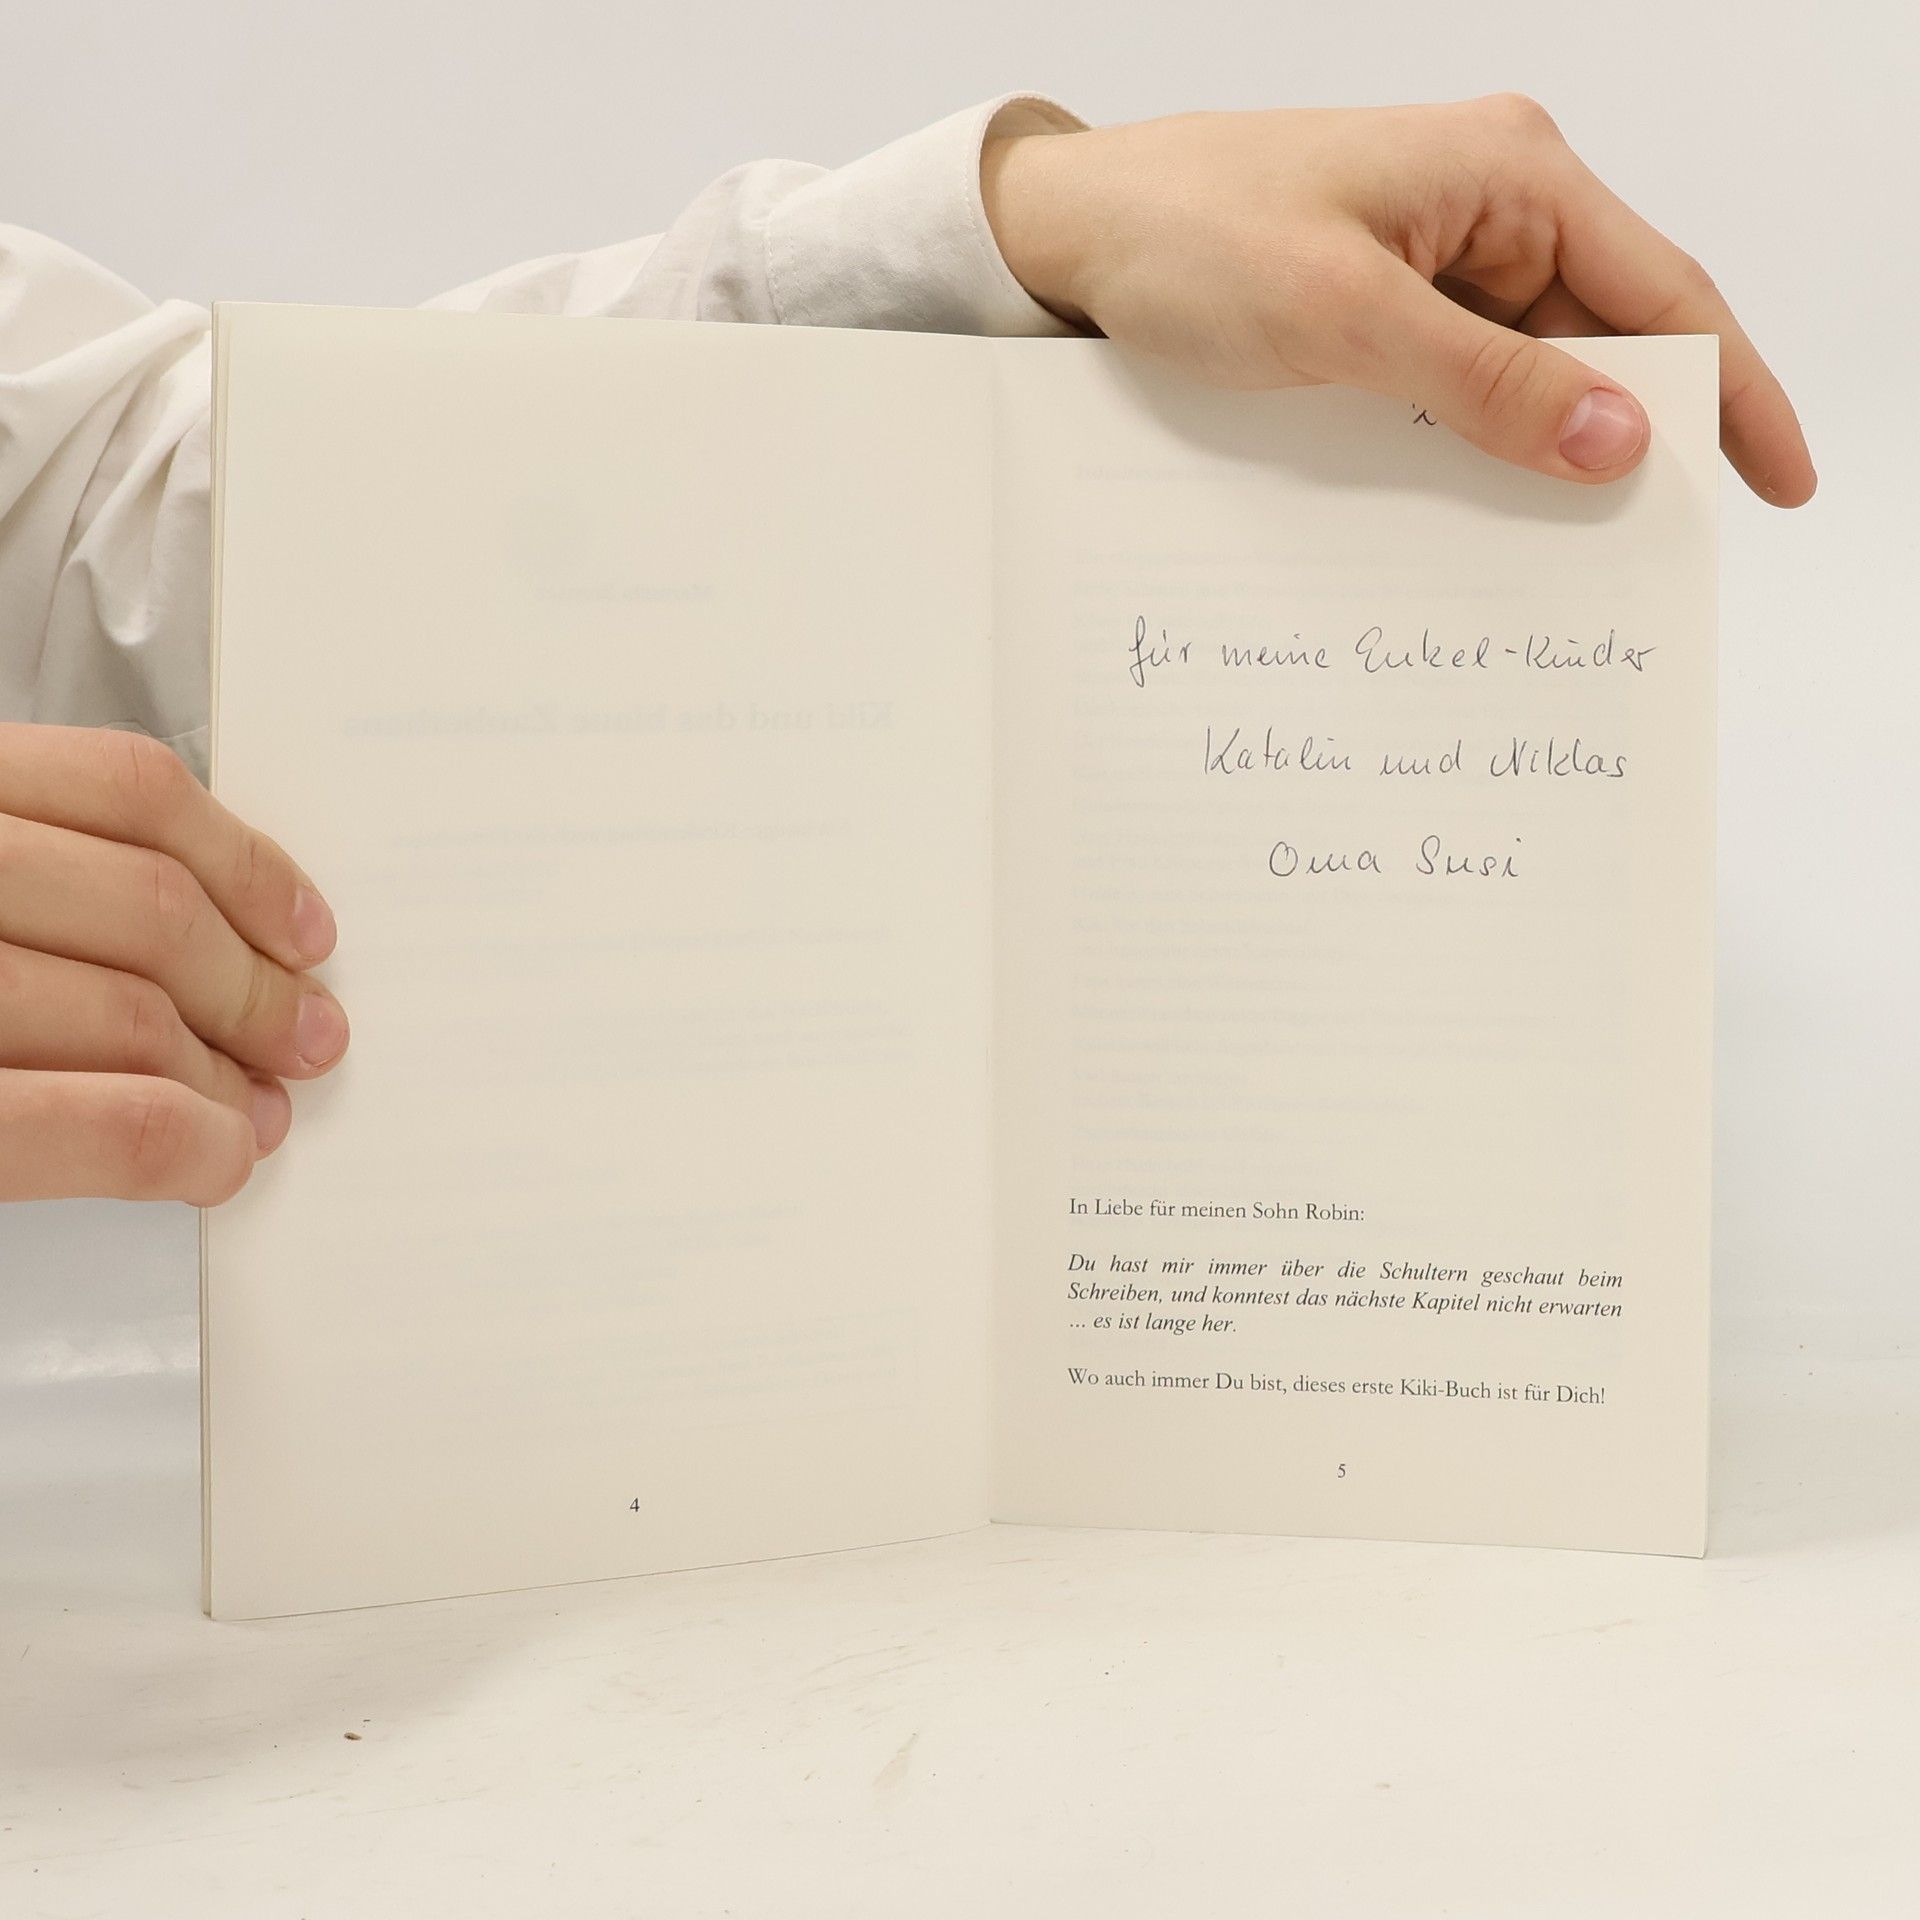 für meine Enkel-Kinder
Katalin und Niklas
Oma Susi
In Liebe für meinen Sohn Robin:
Du hast mir immer über die Schultern geschaut beim
Schreiben, und konntest das nächste Kapitel nicht erwarten
... es ist lange her.
Wo auch immer Du bist, dieses erste Kiki-Buch ist für Dich!
4
5